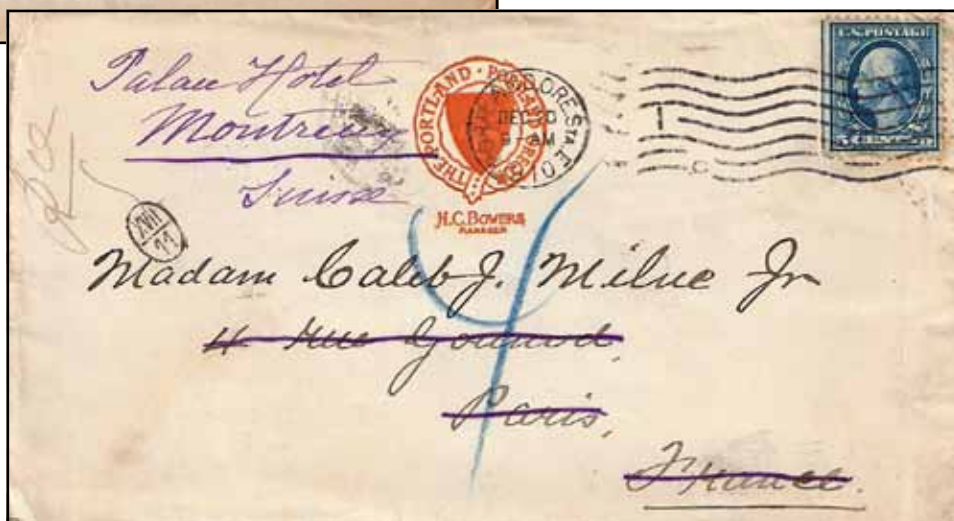 Palace Hotel
Montreux
Suisse
THE PORTLAND · PORTLAND OREGON
H.C. BOWERS
MANAGER
ORE STA
DEC
AM
U.S. POSTAGE
XVII
Madam Caleb J. Milne Jr
4 Rue Gounod,
Paris,
France.